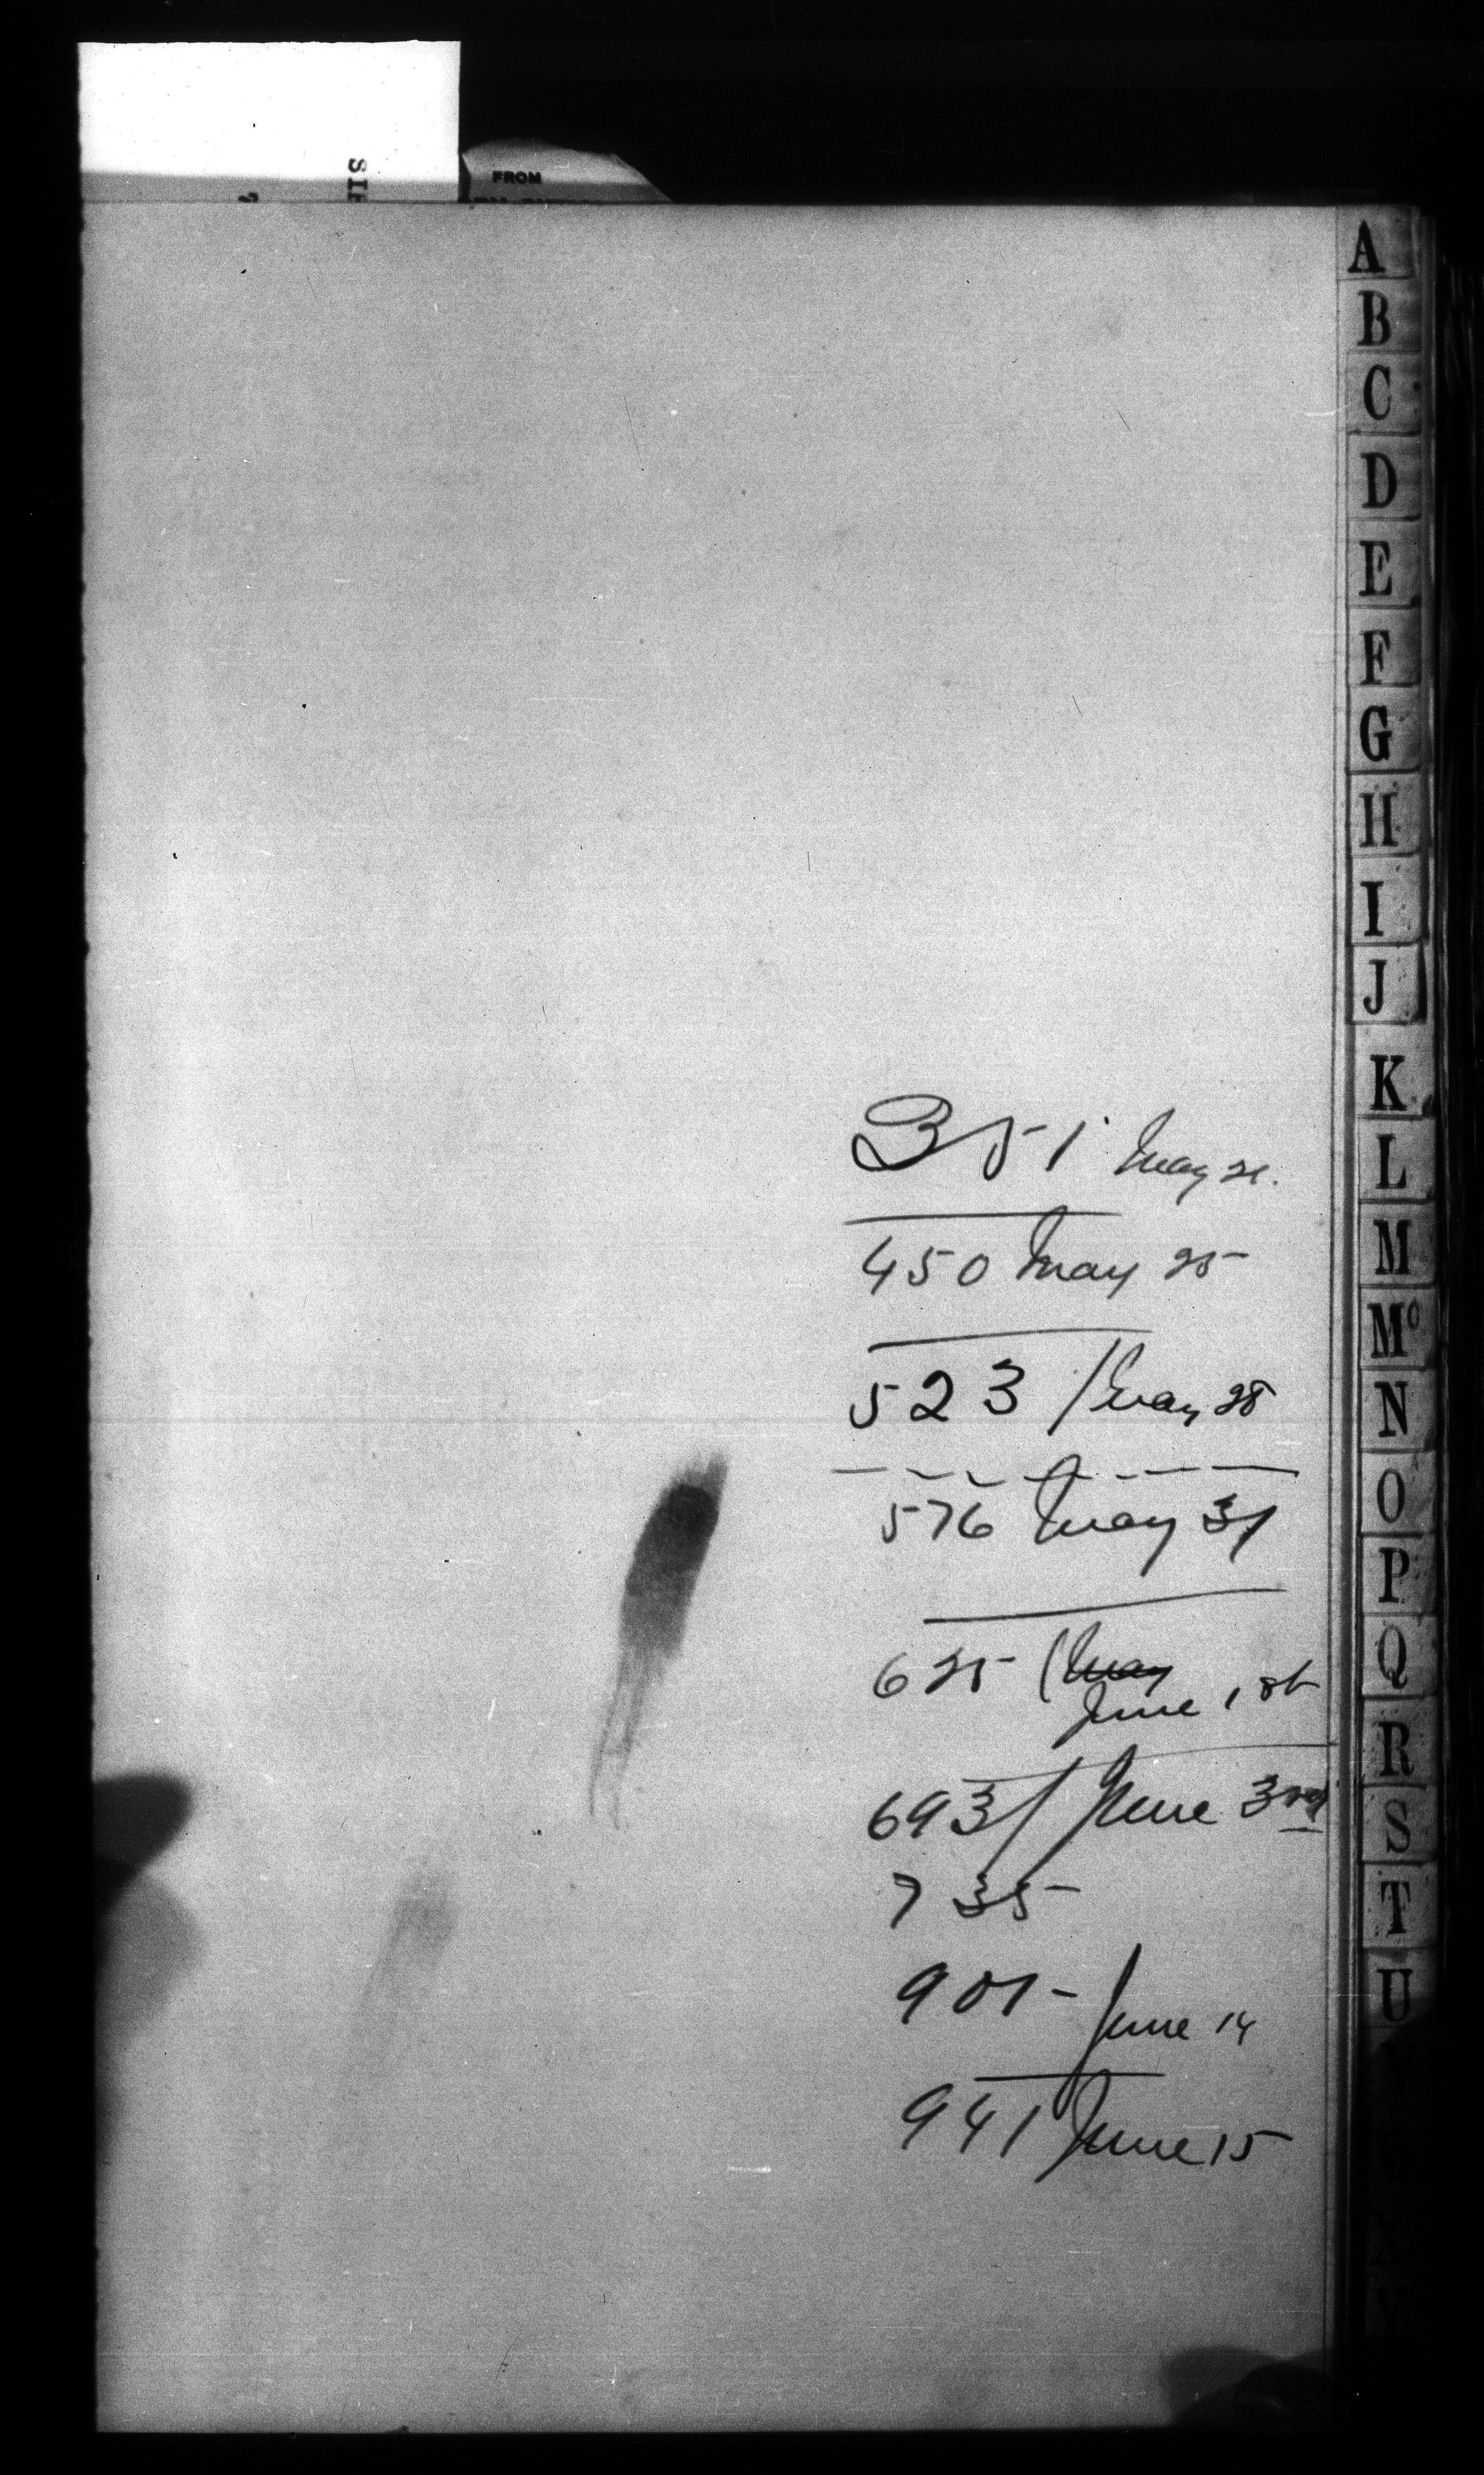 FROM
351 May 21.
450 May 25
523 / May 28
576 May 31
625 ( May
June 1st
693 / June 3rd
735
901 - June 14
941 June 15
A
B
C
D
E
F
G
H
I
J
K
L
M
Mc
N
O
P
Q
R
S
T
U
V
W
X
Y